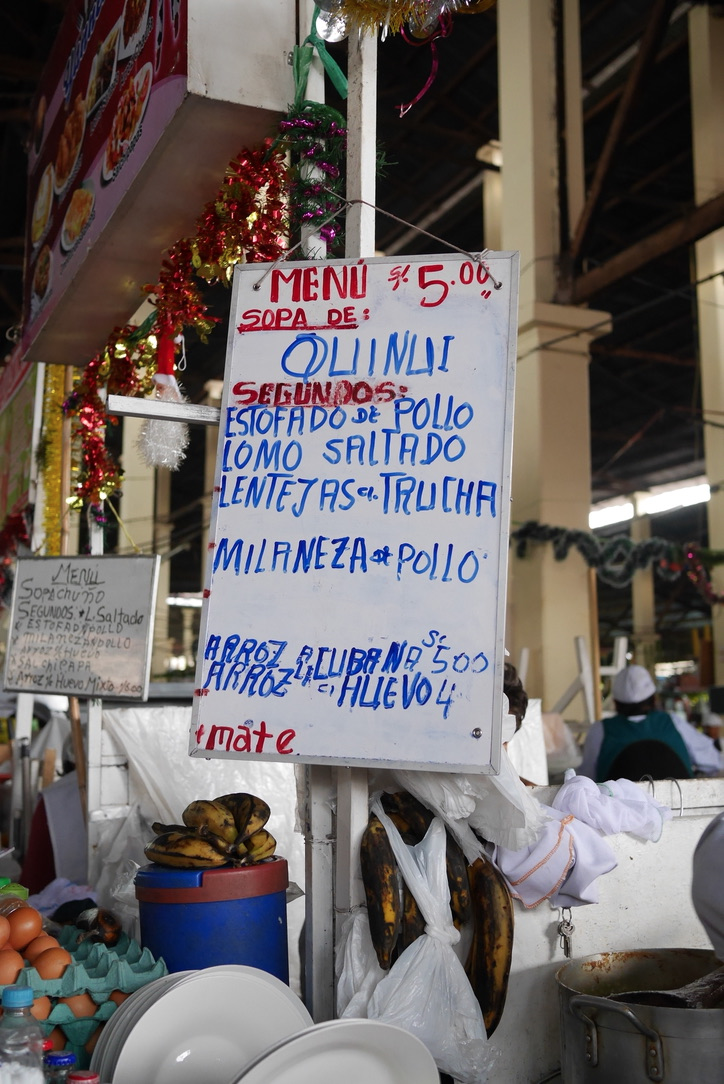 MENÚ S/. 5.00
SOPA DE:
QUINUI
SEGUNDOS:
ESTOFADO DE POLLO
LOMO SALTADO
LENTEJAS C. TRUCHA
MILANEZA DE POLLO
ARROZ A CUBANA S/ 500
ARROZ C. HUEVO 4
+ mate
MENÚ
SOPA CHUÑO
SEGUNDOS. L. Saltado
ESTOFADO POLLO
MILANEZA D POLLO
ARROZ HUEVO
SALCHIPAPA
ARROZ HUEVO Mixto